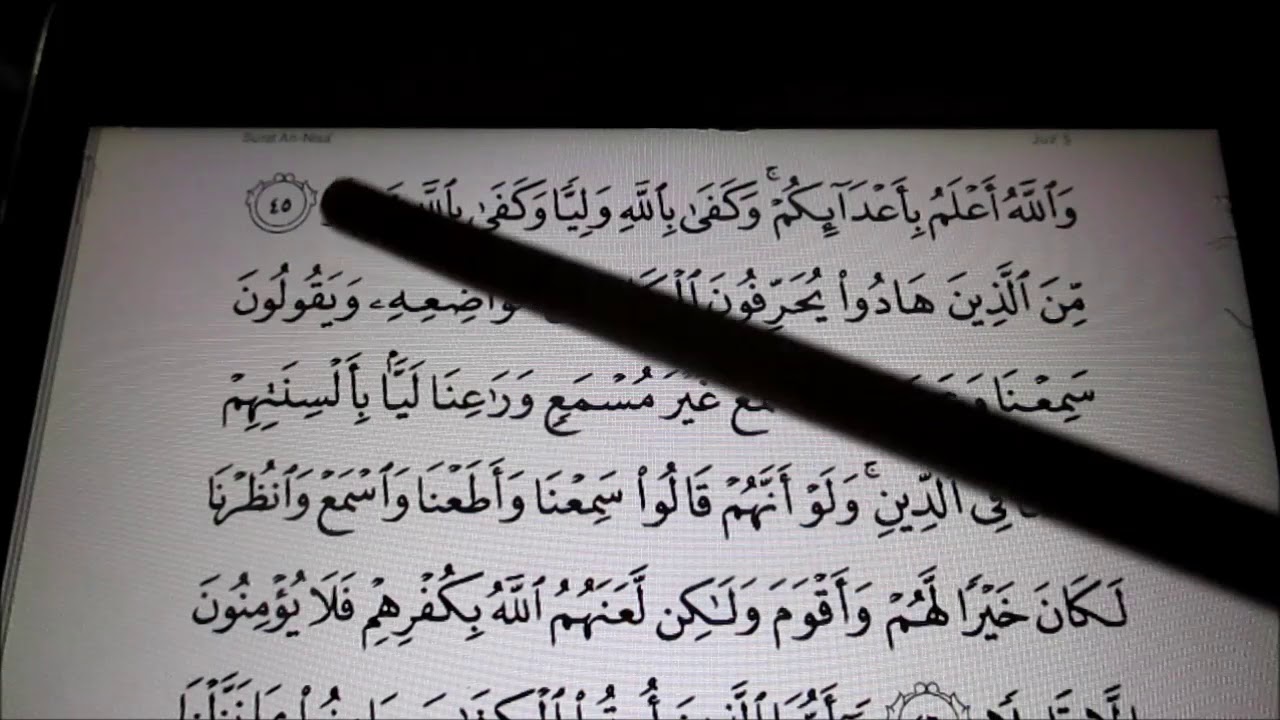 Surat An-Nisa' Juz' 5
وَٱللَّهُ أَعْلَمُ بِأَعْدَآئِكُمْ ۚ وَكَفَىٰ بِٱللَّهِ وَلِيًّا وَكَفَىٰ بِٱللَّهِ ٤٥
مِّنَ ٱلَّذِينَ هَادُوا۟ يُحَرِّفُونَ وَيَقُولُونَ
سَمِعْنَا غَيْرَ مُسْمَعٍ وَرَٰعِنَا لَيًّۢا بِأَلْسِنَتِهِمْ
فِى ٱلدِّينِ ۚ وَلَوْ أَنَّهُمْ قَالُوا۟ سَمِعْنَا وَأَطَعْنَا وَٱسْمَعْ وَٱنظُرْنَا
لَكَانَ خَيْرًا لَّهُمْ وَأَقْوَمَ وَلَـٰكِن لَّعَنَهُمُ ٱللَّهُ بِكُفْرِهِمْ فَلَا يُؤْمِنُونَ